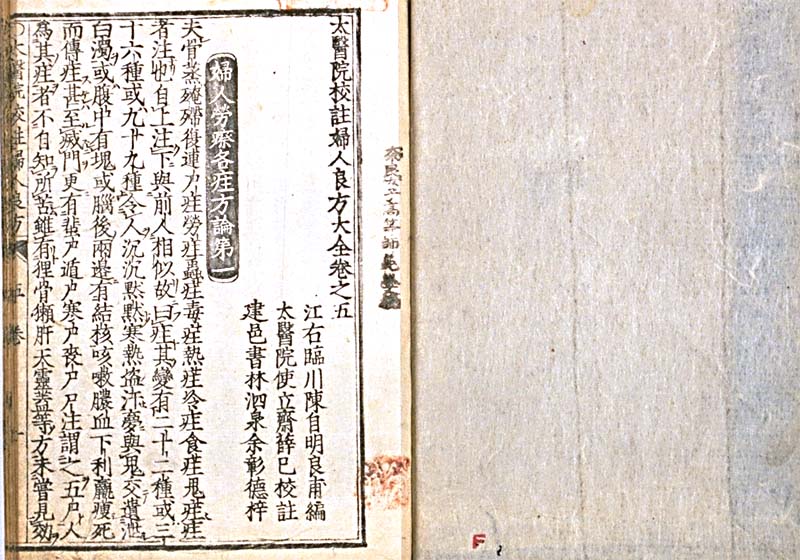 太醫院校註婦人良方大全卷之五
江右臨川陳自明良甫編
太醫院使立齋薛已校註
建邑書林泗泉余彰德梓
婦人勞瘵各疰方論第一
夫骨蒸殗殜復連尸疰勞疰蟲疰毒疰熱疰冷疰食疰鬼疰疰
者注也自上注下與前人相似故曰疰其變有二十二種或三
十六種或九十九種令人沉沉默默寒熱盜汗夢與鬼交遺泄
白濁或腹中有塊或腦後兩邊有結核咳嗽膿血下利羸瘦死
而傳疰甚至滅門更有蜚尸遁尸寒尸喪尸尸注謂之五尸人
為其疰者不自知所苦雖有狸骨獺肝天靈蓋等方未嘗見効
太醫院校註婦人良方 五卷
F